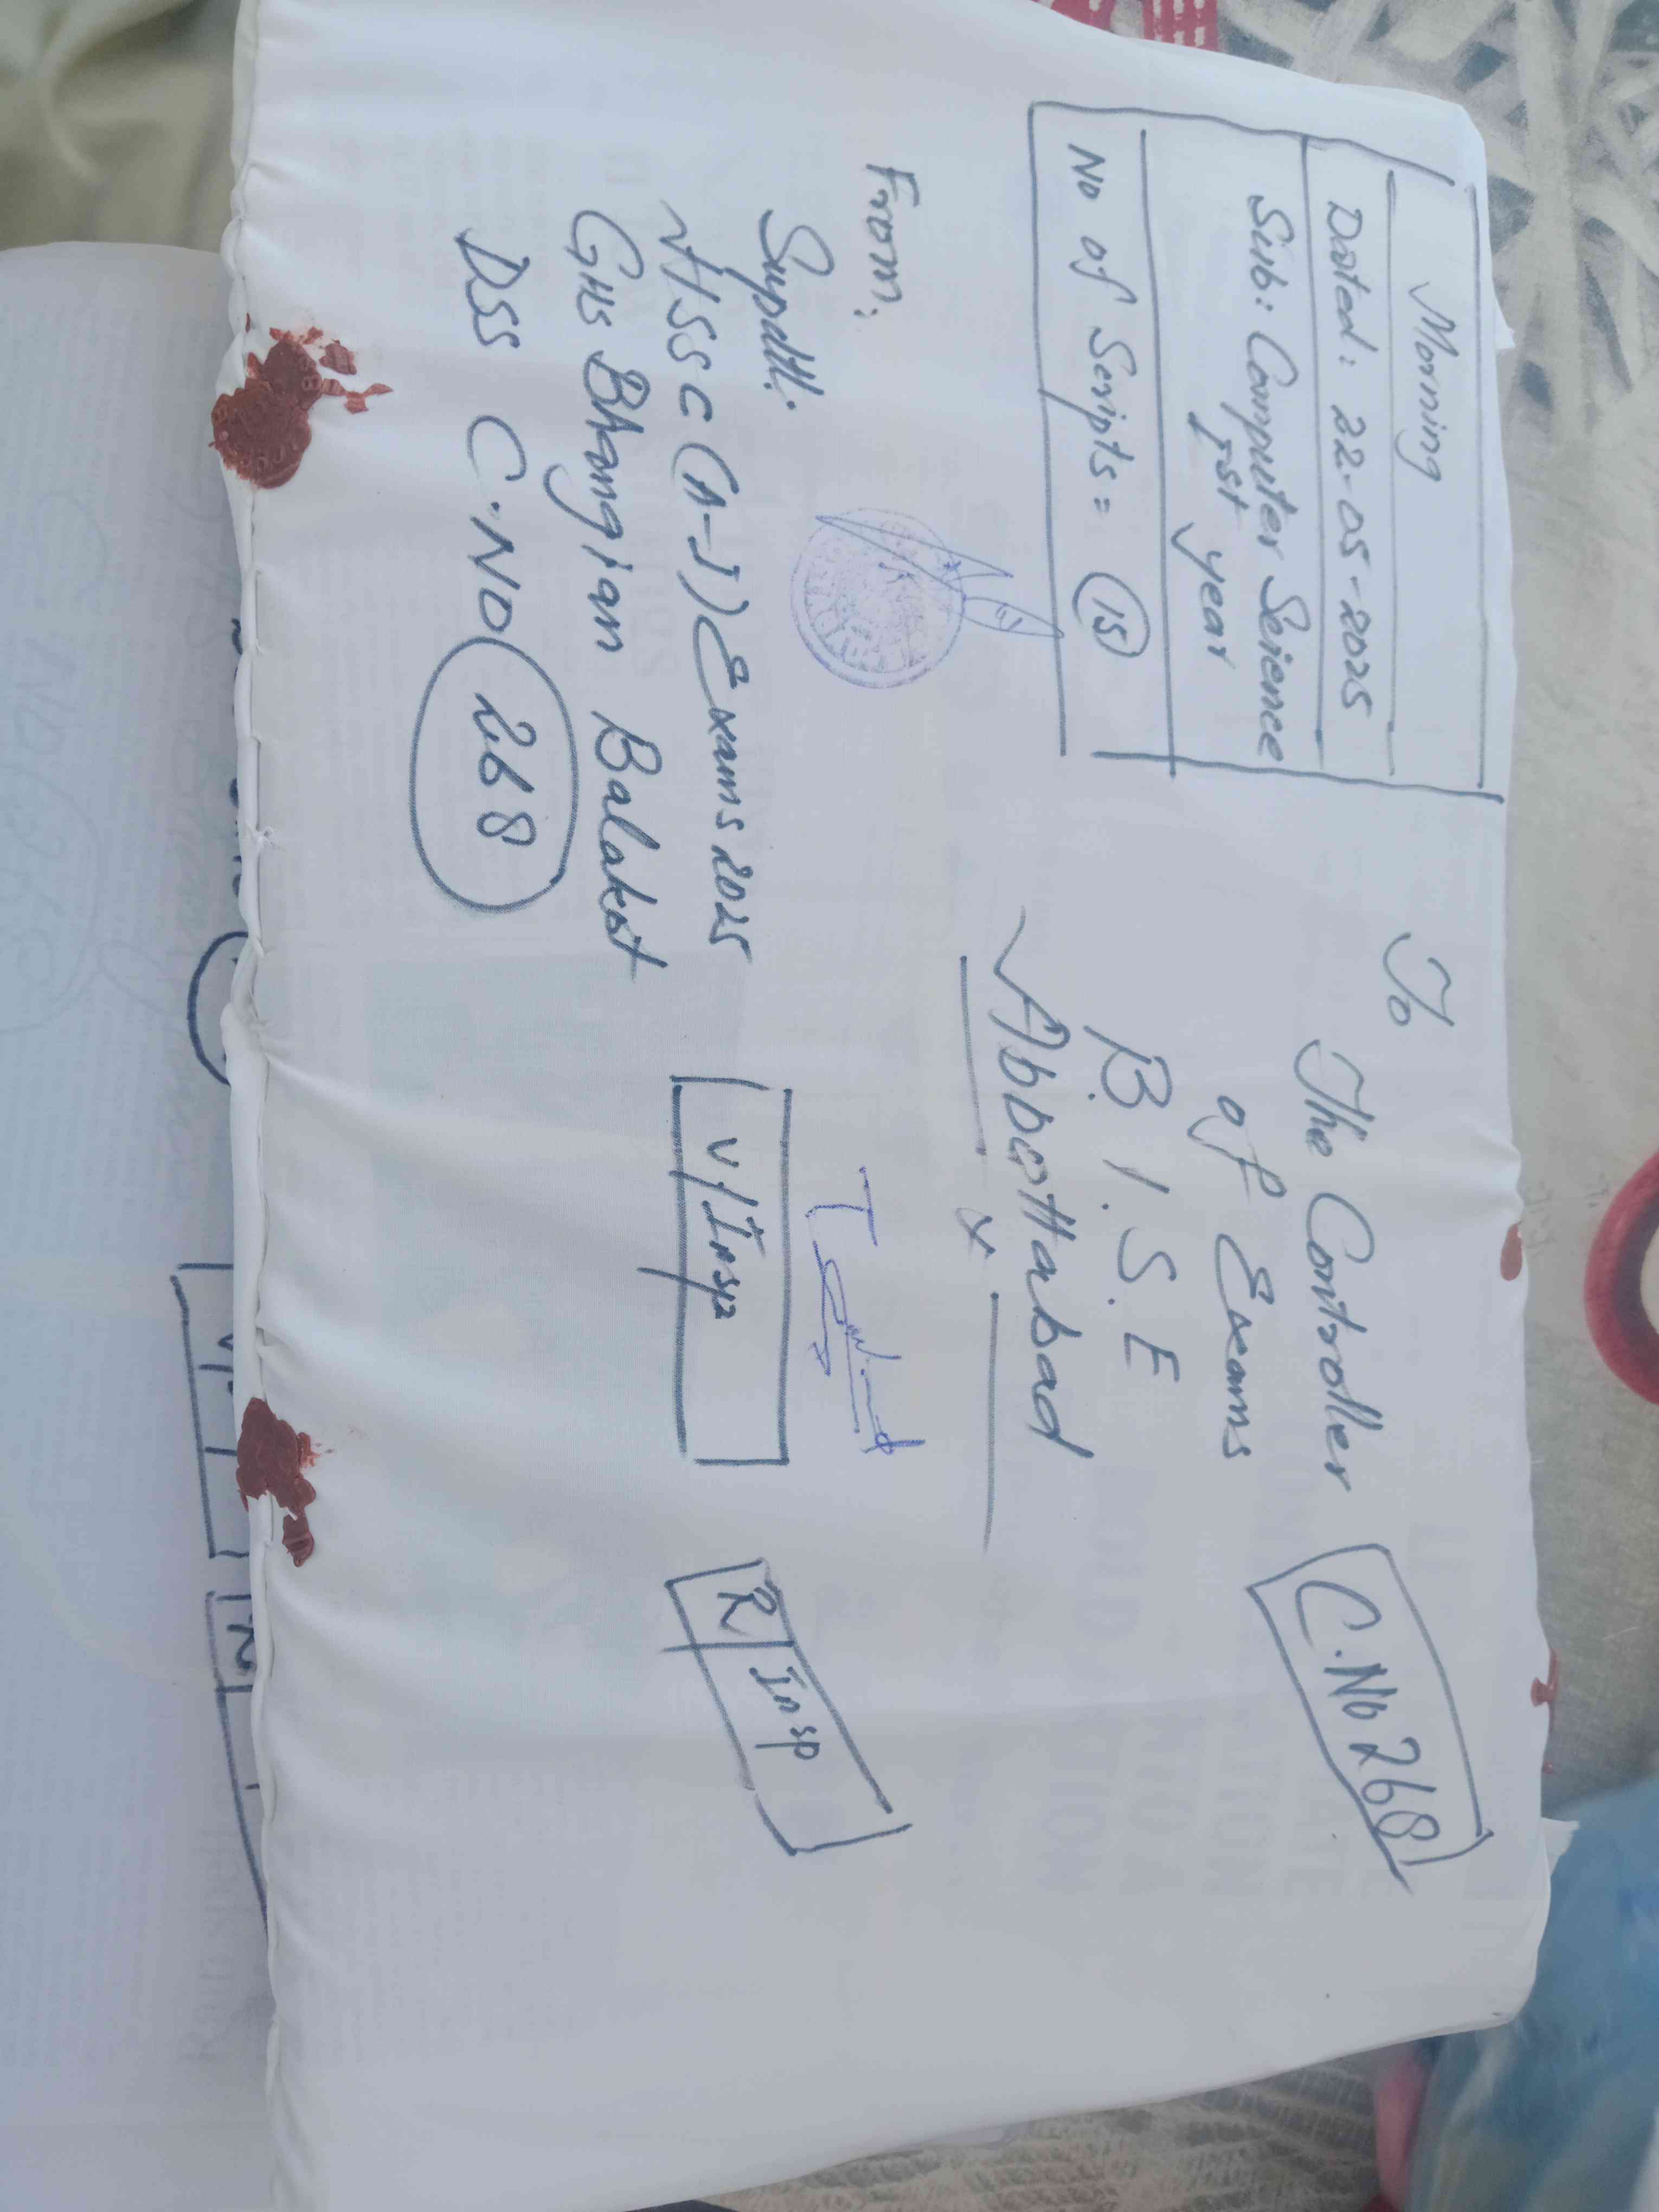 Morning
Dated: 22-05-2025
Sub: Computer Science
1st year
No of Scripts = 15
To
The Controller
of Exams
B.I.S.E
Abbottabad
C.No 268
From:
Supdtt:
HSSC (A-I) Exams 2025
GHS Bhangian Balakot
DSS C.NO 268
V/Insp
R Insp